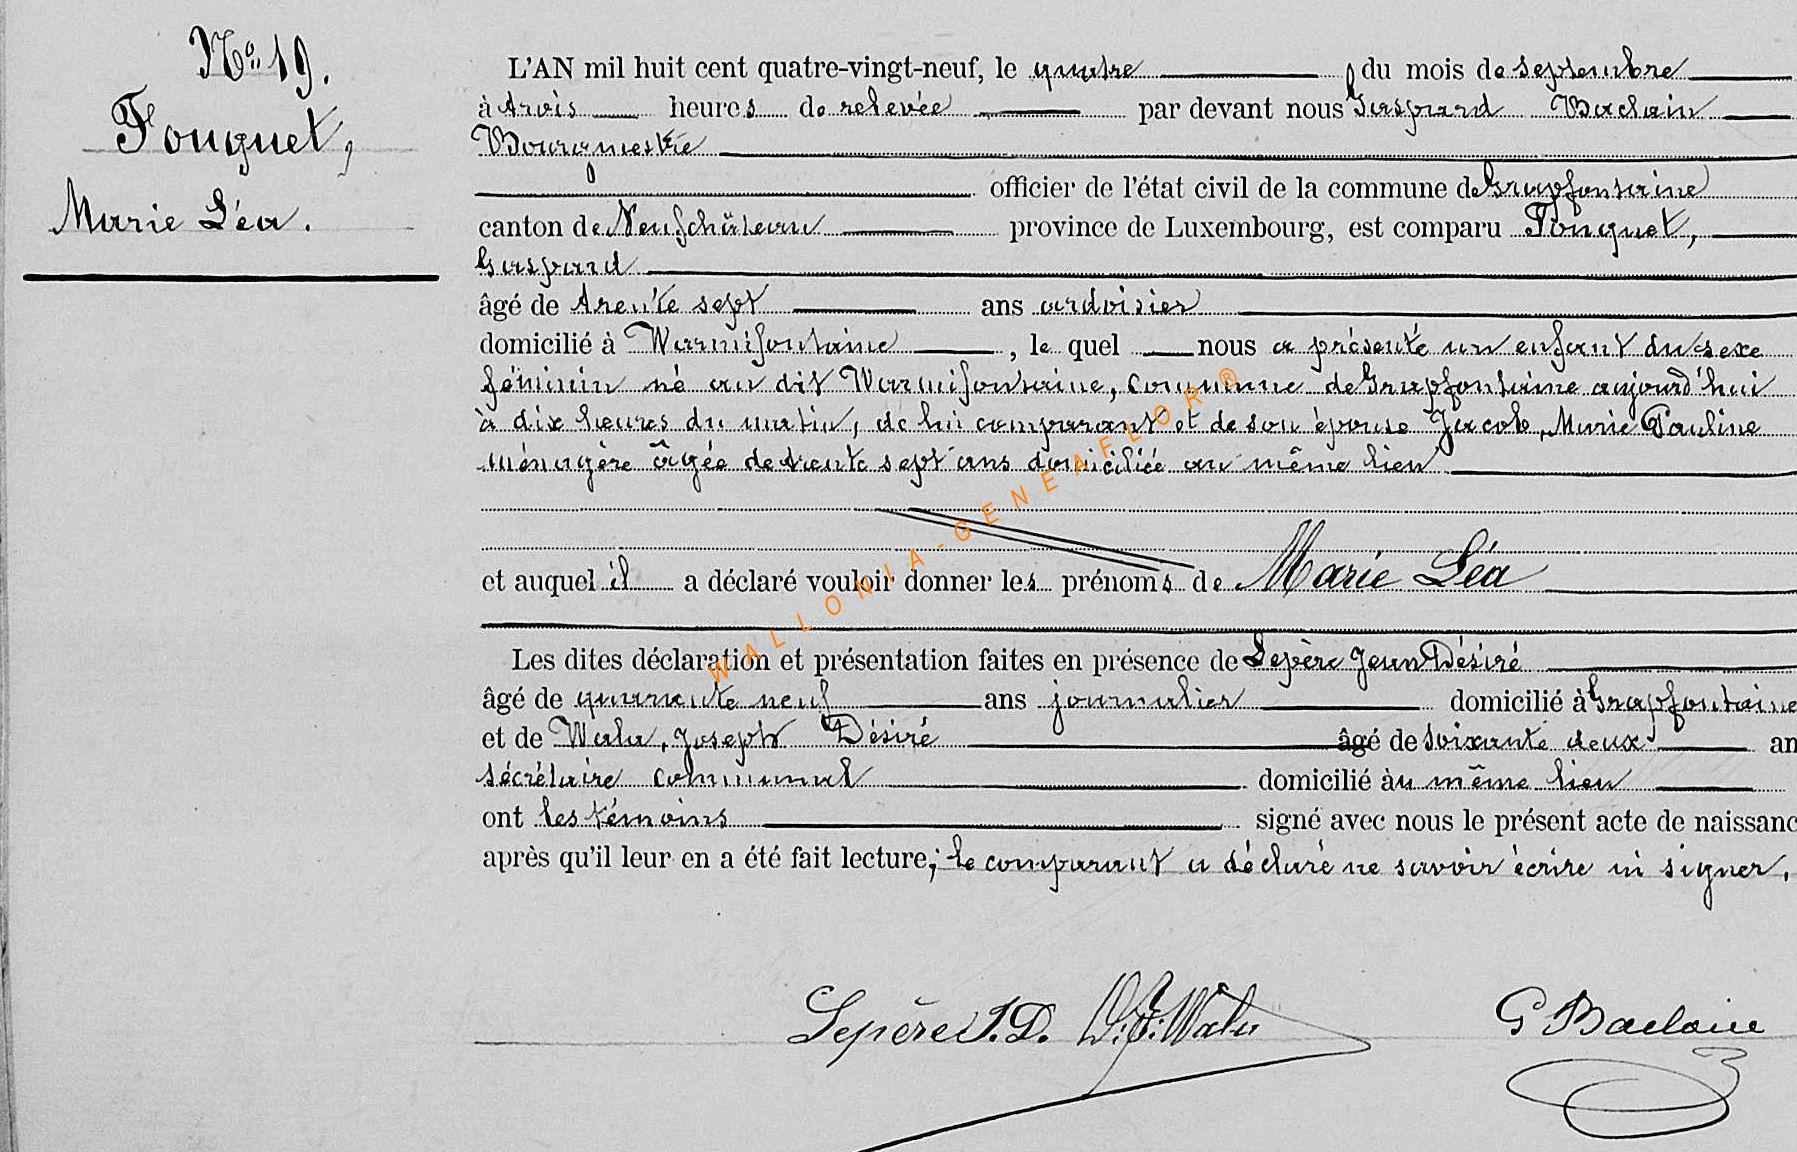 No 19.
Fouguet,
Marie Léa.
L'AN mil huit cent quatre-vingt-neuf, le quatre du mois de septembre
à trois heures de relevée par devant nous Gaspard Baclain
Bourgmestre
officier de l'état civil de la commune de Grapfontaine
canton de Neufchâteau province de Luxembourg, est comparu Fouguet,
Gaspard
âgé de trente sept ans ardoisier
domicilié à Warmifontaine, le quel nous a présenté un enfant du sexe
féminin né au dit Warmifontaine, commune de Grapfontaine aujourd'hui
à dix heures du matin, de lui comparant et de son épouse Jacob, Marie Pauline
ménagère âgée de trente sept ans domiciliée au même lieu
et auquel il a déclaré vouloir donner les prénoms de Marie Léa
Les dites déclaration et présentation faites en présence de Lepère Jean Désiré
âgé de quarante neuf ans journalier domicilié à Grapfontaine
et de Wala, Joseph Désiré âgé de soixante deux an
sécrétaire communal domicilié àu même lieu
ont les témoins signé avec nous le présent acte de naissanc
après qu'il leur en a été fait lecture; le comparant a déclaré ne savoir écrire ni signer.
Lepère J.D. D.J. Wala G Baclain
WALLONIA-GENEAFLOR ®